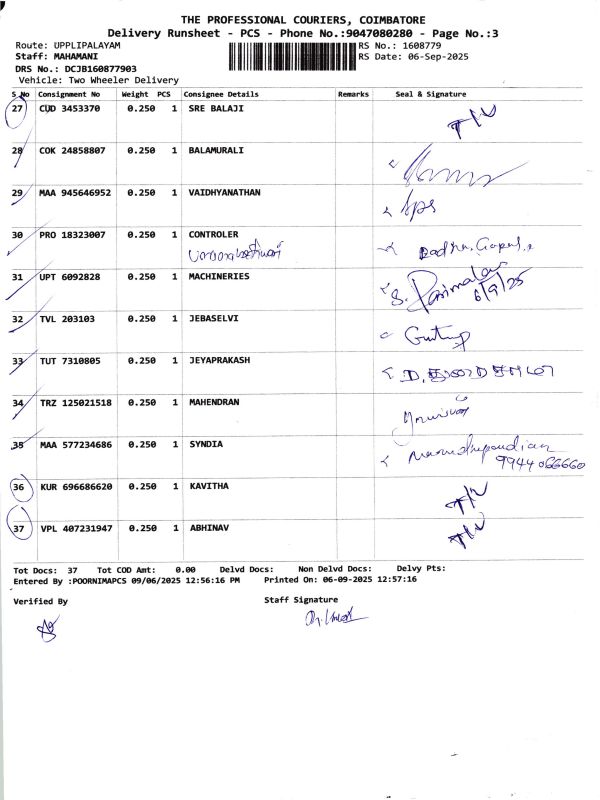 THE PROFESSIONAL COURIERS, COIMBATORE
Delivery Runsheet - PCS - Phone No.:9047080280 - Page No.:3
Route: UPPLIPALAYAM RS No.: 1608779
Staff: MAHAMANI RS Date: 06-Sep-2025
DRS No.: DCJB160877903
Vehicle: Two Wheeler Delivery
S No Consignment No Weight PCS Consignee Details Remarks Seal & Signature
27 CUD 3453370 0.250 1 SRE BALAJI
28 COK 24858807 0.250 1 BALAMURALI
29 MAA 945646952 0.250 1 VAIDHYANATHAN
30 PRO 18323007 0.250 1 CONTROLER
31 UPT 6092828 0.250 1 MACHINERIES S. Parimala
6/9/25
32 TVL 203103 0.250 1 JEBASELVI
33 TUT 7310805 0.250 1 JEYAPRAKASH
34 TRZ 125021518 0.250 1 MAHENDRAN
35 MAA 577234686 0.250 1 SYNDIA
9944066660
36 KUR 696686620 0.250 1 KAVITHA
37 VPL 407231947 0.250 1 ABHINAV
Tot Docs: 37 Tot COD Amt: 0.00 Delvd Docs: Non Delvd Docs: Delvy Pts:
Entered By :POORNIMAPCS 09/06/2025 12:56:16 PM Printed On: 06-09-2025 12:57:16
Verified By Staff Signature